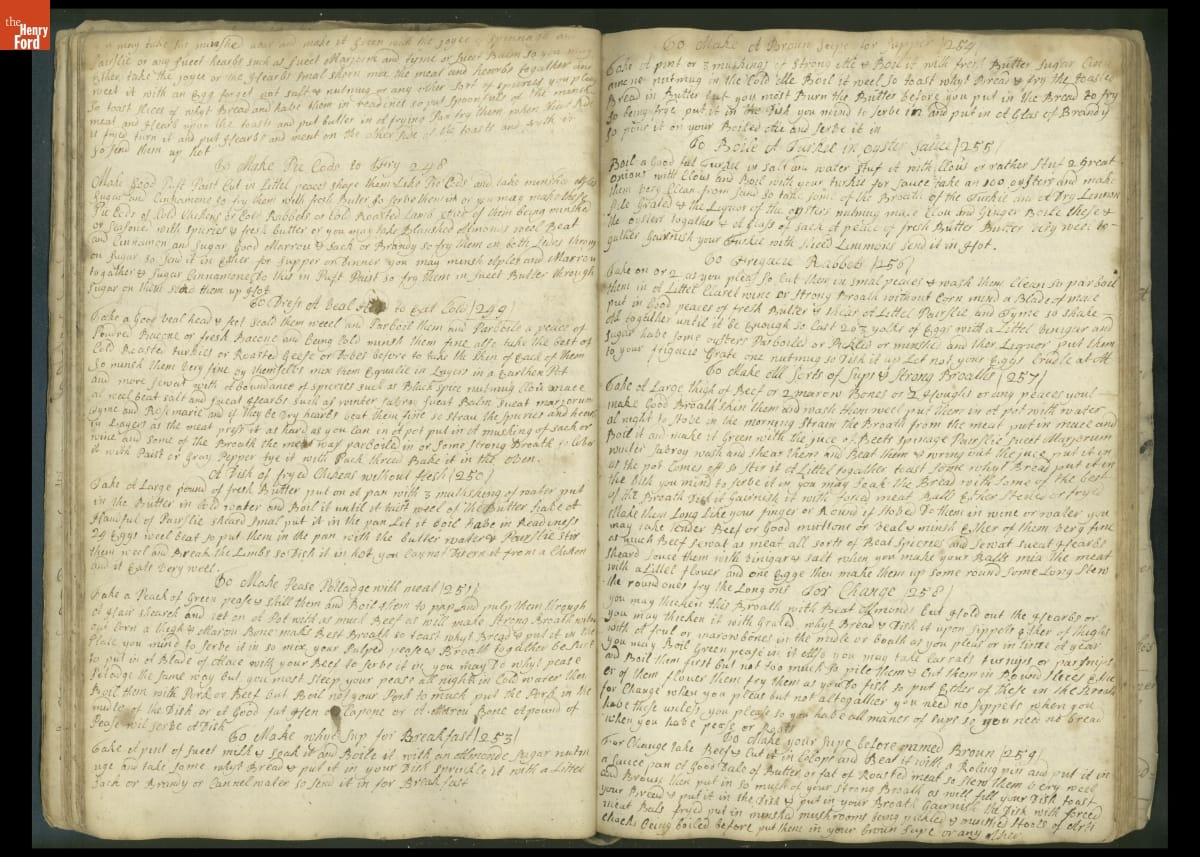 the
Henry
Ford
may take and make it Green with the joyce of Spinnage and
Parslie or any sweet hearbs such as sweet Marjorm and tyme or sweet Baem so you may
Ether take the joyce or the Hearbs small shorn mix the meat and hearbs togather and
weet it with an Egg forget not salt & nutmug or any other sort of spieries you pleas
So toast slices of whyt Bread and habe them in readines so put spoonfuls of the
meat and Hearbs upon the toasts and put butter in a frying Pan fry them when that side
is fryed turn it and put Hearbs and meat on the other side of the toasts and
So send them up hot
To Make Pic Cods to ffry 248
Make Good Puft Paist Cut in Littel peaces shape them Like Pic Cods and take minshed
sugar and Cinnamons so fry them with fresh Buter So serbe them or you may make these
Pic Cods of Cold Chickens or Cold Rabbets or Cold Roasted Lamb of them being minshed
or season with spieries & fresh butter or you may take Blanshed Almonds weel Beat
and Cinnamon and sugar Good Marrow & Sack or Brandy so fry them on both sides throw
on Sugar so send it in Ether for supper or Denner you may minsh Aplet and Marrow
togather & Sugar Cinnamons So this in Puft Paist so fry them in sweet Butter through
Sugar on them send them up Hot
To Dress A Veal to Eat Cold 249
Take a Good veal head & feet scald them weeel and Parboil them and Parboile a peace of
Poudred Bacone or fresh Bacone and being Cold minsh them fine also take the best of
Cold Roasted turkies or Roasted Geese or before to take the skin of Each of them
So minsh them very fine by themselfs mix them Equalie in Layers in a Earthen Pot
and more sewat with aboundance of spieries such as Black spice nutmug Clow mace
al weel beat salt and sweat Hearbs such as winter Sabrou Sweat Balm Sweat marjorum
tyme and Rosemarie and if they be Dry hearbs beat them fine so strau the spieries and hearbs
in Layers as the meat press it as hard as you can in a pot put in a mushking of sack or
wine and some of the Broath the meat was parboiled in or some strong Broath so Cover
it with Paist or Gray Pepper tye it with Pack threed Bake it in the oven.
A Dish of fryed Chickens without flesh 250
Take a Large pound of fresh Butter put on a pan with 3 mutshkeng of water put
in the Butter in Cold water and Boil it until it tast weel of the Butter take a
Handful of Parslie sheard Smal put it in the pan Let it Boil habe in Readiness
24 Eggs weel beat so put them in the pan with the butter water & Parslie stir
them weel and Break the Limbs so Dish it in hot, you Cay not Decern it from a Chiken
and it Eats very weel.
To Make Pease Pottadge with meat 251
Take a Peack of Green pease & shill them and Boil them to pap and pulp them through
a Hair shearch and set on a Pot with as much Beef as will make strong Broath
out Corn a thigh & Marow Bone make Best Broath so toast whyt Bread & put it in the
Plate you mind to serbe it in so mix your Pulped pease & Broath togather be sure
to put in a Blade of Mace with your Beef So serbe it in, you may Do whyt pease
Potodge the same way but you most steep your pease all night in Cold water then
Boil them with Pork or Beef but Boil not your Pork to much put the Pork in the
midle of the Dish or a Good fat Hen a Capone or a Marow Bone a pound of
Pease wil serbe a Dish
To Make whyt Sup for Breakfast 253
Take a pint of sweet milk & soak it and Boile it with an Almonde Sugar nutm
ugs and take some whyt Bread & put it in your Dish sprinkle it with a Littel
Sack or Brandy or Cannel water so Send it in for Breakfast
To Make A Broun Supe for Supper 254
Take a pint or 3 mushkings of strong Ale & Boil it with fresh Butter Sugar Cina
mone nutmug in the Cold Ale Boil it weel so toast whyt Bread & fry the toasted
Bread in Butter but you most Burn the Butter before you put in the Bread to fry
So being frye put it in the Dish you mind to serbe in and put in a Glas of Brandy
So pour it on your Boiled Ale and serbe it in
To Boile A Turkie in oyster sauce 255
Boil a Good fat Turkie in salt and water stuf it with Clous or rather stuf 2 Great
Onions with Clous and Boil with your turkie for sauce take an 100 oysters and make
them very Clean from sand so take some of the Broath of the Turkie and a Dry Lemmon
Pile Grated & the Liquor of the oysters nutmug mace Clou and Ginger Boile these &
the oysters togather & a Glass of Sack a peace of fresh Butter Butter very weel to-
gather Garnish your Turkie with sliced Limmons send it in Hot.
To Fregacie Rabbets 256
Take on or 2 as you pleas so Cut ther in smal peaces & wash them Clean so parboil
them in a Littel Claret wine or strong Broath without Corn mind a Blade of mace
put in Good peaces of fresh Butter & shear a Littel Parslie and Tyme so shake
all togather until it be Enough so Cast 2 or 3 yolks of Eggs with a Littel binigar and
Sugar habe some oysters Parboiled or Pickled or minshed and ther Liquer put them
to your frigacie Grate one nutmug so Dish it up Let not your Eggs Crudle at All
To Make All Sorts of Sups & Strong Broaths 257
Take a Large thigh of Beef or 2 marow Bones or 2 Houghs or any peaces you'l
make Good Broath skin them and wash them weel put them in a pot with water
al night to stobe in the morning Strain the Broath from the meat put in mace and
Boil it and make it Green with the juce of Beets spinage Parslie sweet Marjorum
winter sabroy wash and shear them and Beat them & wring out the juce put it in
as the pot Comes off so stir it a Littel togather toast Some whyt Bread put it in
the Dish you mind to serbe it in you may soak the Bread with some of the best
of the Broath Dish it Garnish it with forced meat Balls Ether stewed or fryed
Make them Long Like your finger or Round if stobe Do them in wine or water you
may take tender Beef or Good muttons or veal & minsh Ether of them very fine
as much Beef sewat as meat all sorts of Beat spieries and sewat sweat Hearbs
sheard souce them with binigar & salt when you make your Balls mix the meat
with a Littel flower and one Egge then make them up some round some Long Stew
the round ones fry the Long ons For Change 258
you may thicken this Broath with Beat Almonds but Hold out the Hearbs or
you may thicken it with Grated whyt Bread & Dish it upon sippets Ether of thighs
with a foul or marowbones in the midle or boath as you pleas or in time of year
you may Boil Green pease in it also you may take carrats turnips or parsnips
and Boil them first but not too much to pile them & Cut them in Round slices
er of them flower them fry them as you Do fish so put Either of these in the Broath
for Change when you pleas but not altogather you need no sippets when you
habe these unless you please so you habe all maner of Sups so you need no bread
when you habe pease or Roots
To Make your Supe before named Broun 259
For Change take Beef & Cut it in Colops and Beat it with a Roling pin and put it in
a sauce pan a Good Dale of Butter or fat of Roasted meat so Stew them very weel
and Broun then put in so much of your strong Broath as will fill your Dish toast
your Bread & put it in the Dish & put in your Broath Garnish the Dish with forced
meat Bals fryed put in minshd mushrooms being pickled & Stools of Arti
chocks Being boiled before put them in your broun Supe or any other